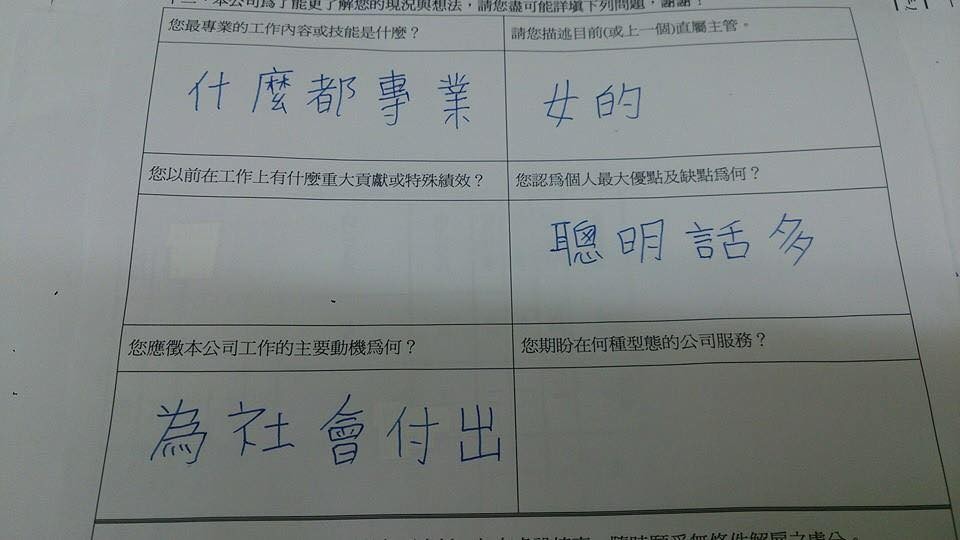 十二、本公司為了能更了解您的現況與想法，請您盡可能詳填下列問題，謝謝！
您最專業的工作內容或技能是什麼？
請您描述目前(或上一個)直屬主管。
什麼都專業
女的
您以前在工作上有什麼重大貢獻或特殊績效？
您認為個人最大優點及缺點為何？
聰明話多
您應徵本公司工作的主要動機為何？
您期盼在何種型態的公司服務？
為社會付出
隨時願受無條件解雇之處分。